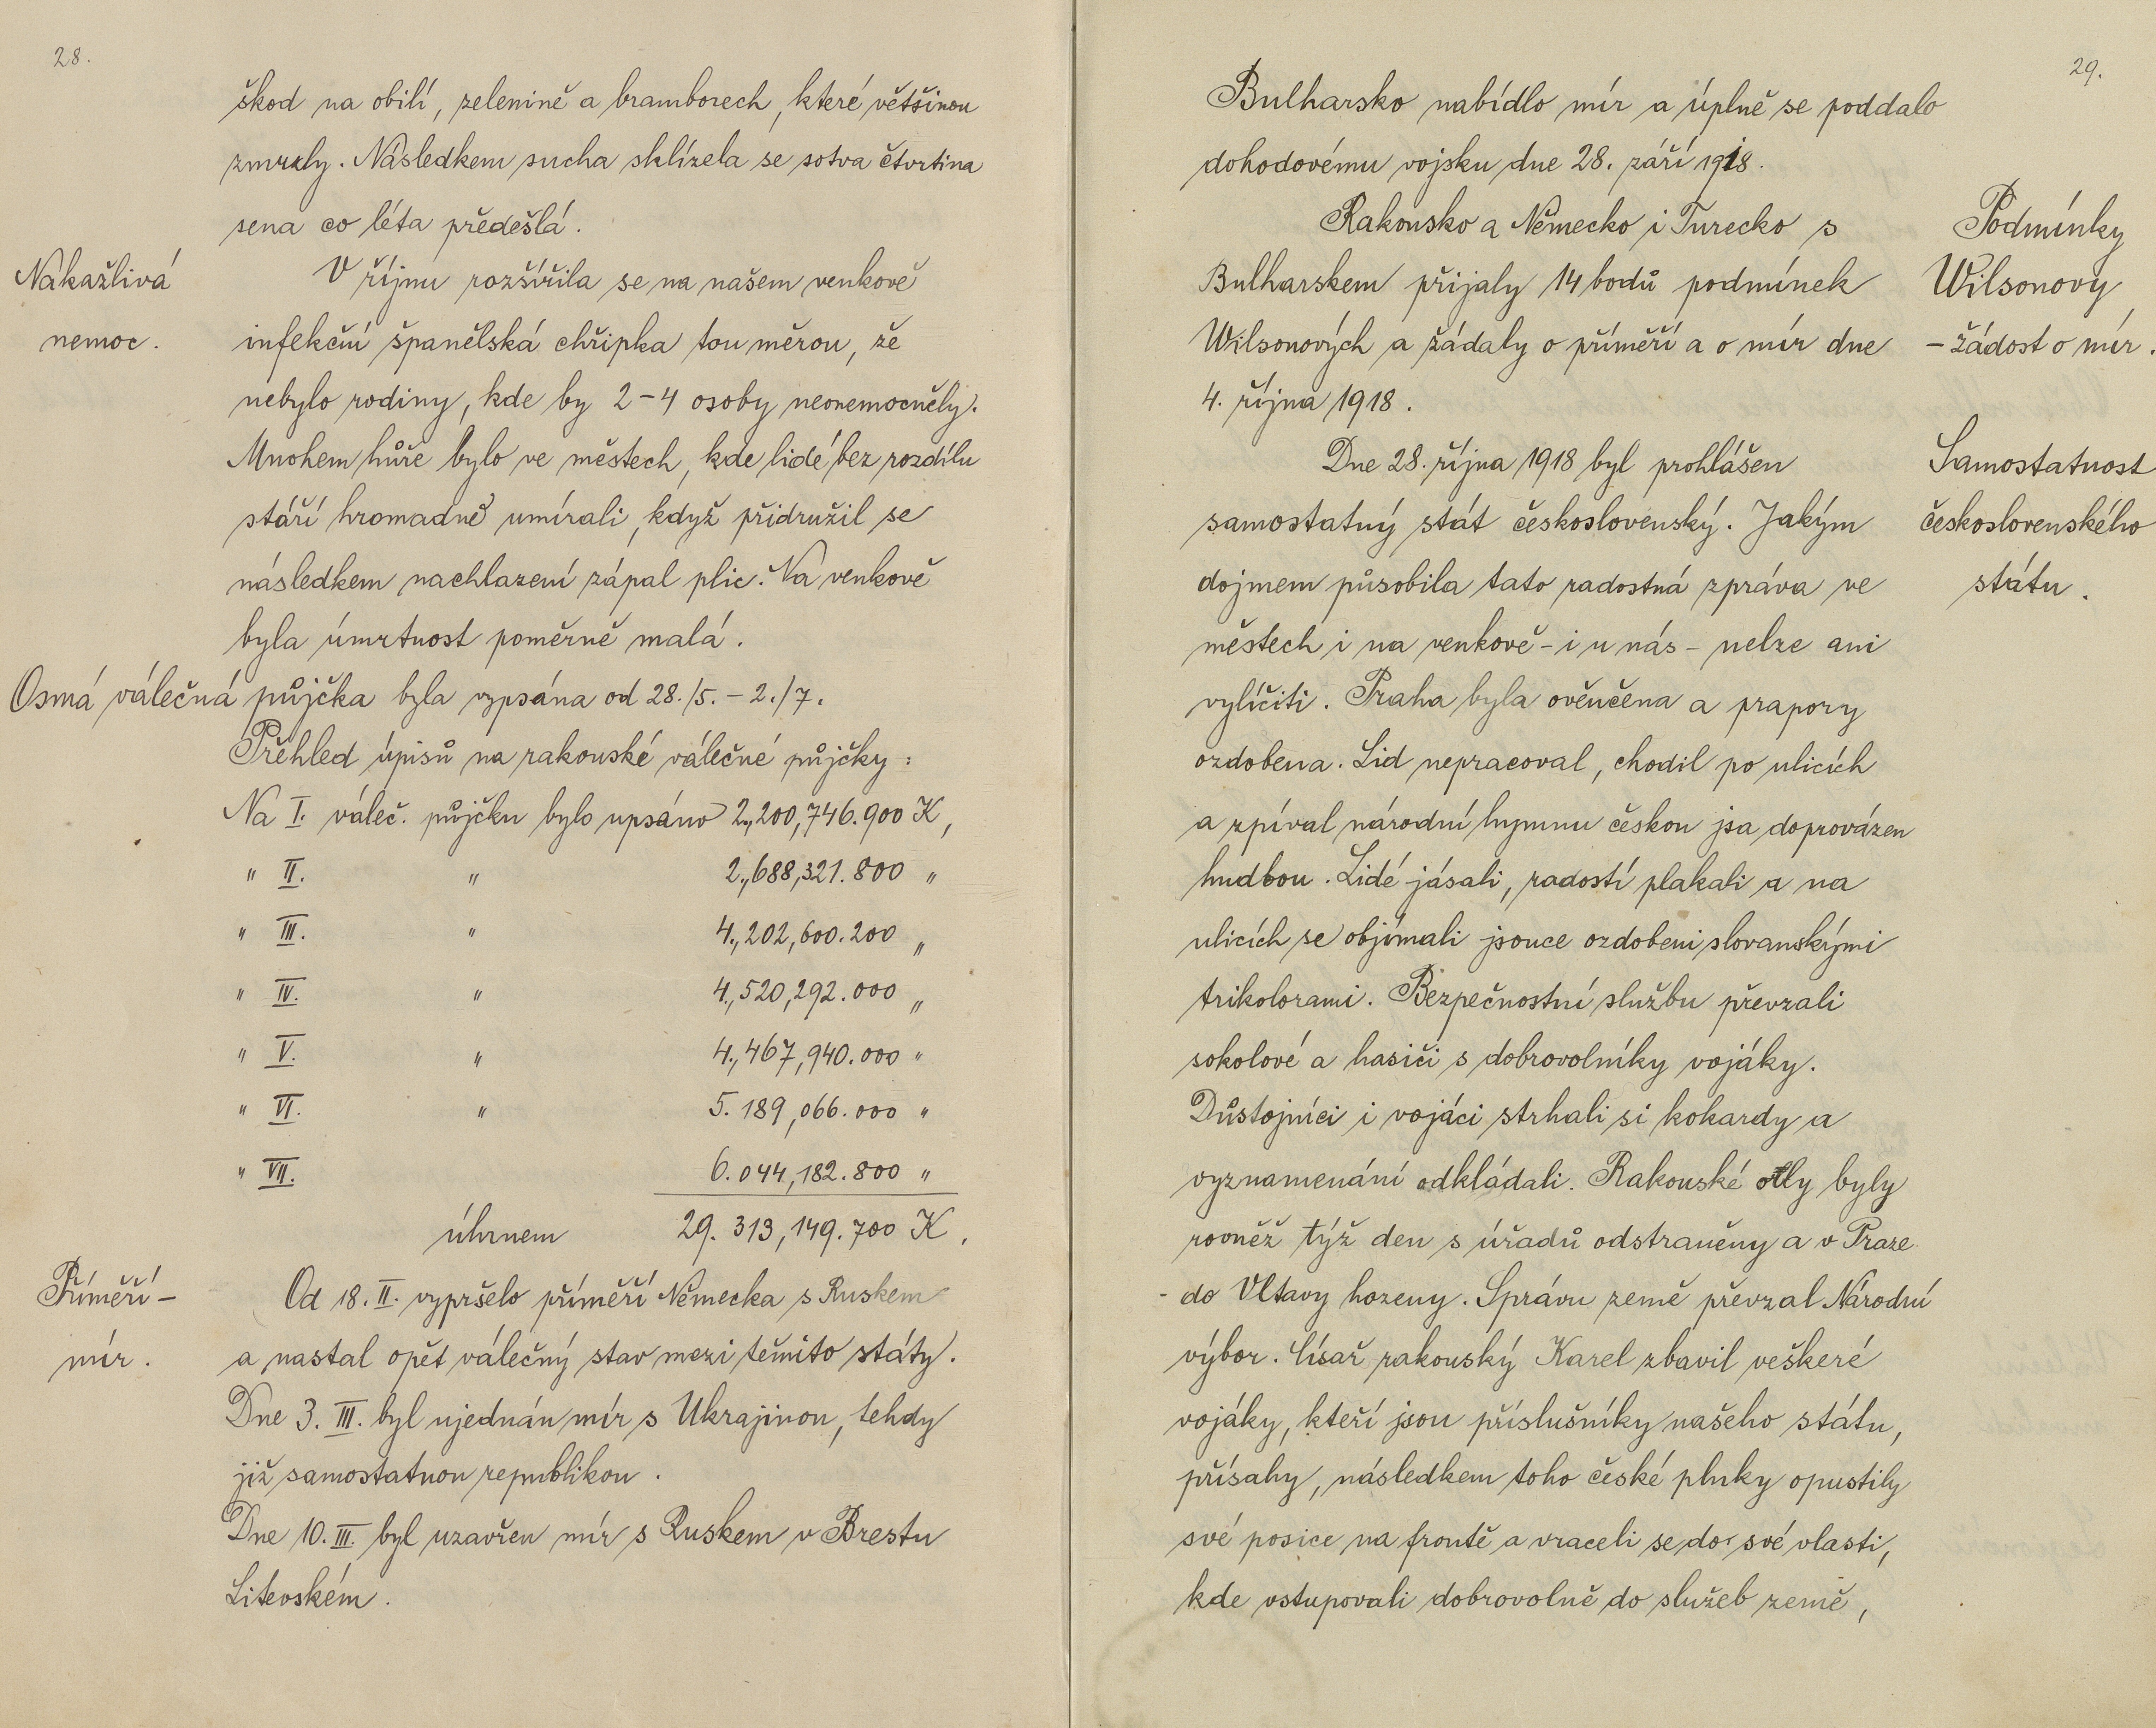 28.
škod na obilí, zelenině a bramborech, které většinou
zmrzly. Následkem sucha sklízela se sotva čtvrtina
sena co léta předešlá.
Nakažlivá
nemoc.
V říjnu rozšířila se na našem venkově
infekční španělská chřipka tou měrou, že
nebylo rodiny, kde by 2-4 osoby neonemocněly.
Mnohem hůře bylo ve městech, kde lidé bez rozdílu
stáří hromadně umírali, když přidružil se
následkem nachlazení zápal plic. Na venkově
byla úmrtnost poměrně malá.
Osmá válečná půjčka byla vypsána od 28./5. - 2./7.
Přehled úpisů na rakouské válečné půjčky:
Na I. váleč. půjčku bylo upsáno 2.,200,746.900 K,
" II. " 2.,688,321.800 "
" III. " 4.,202,600.200 "
" IV. " 4.,520,292.000 "
" V. " 4.,467,940.000 "
" VI. " 5.189,066.000 "
" VII. 6.044,182.800 "
úhrnem 29.313,149.700 K.
Příměří -
mír.
Od 18. II. vypršelo příměří Německa s Ruskem
a nastal opět válečný stav mezi těmito státy.
Dne 3. III. byl ujednán mír s Ukrajinou, tehdy
již samostatnou republikou.
Dne 10. III. byl uzavřen mír s Ruskem v Brestu
Litevském.
29.
Bulharsko nabídlo mír a úplně se poddalo
dohodovému vojsku dne 28. září 1918.
Rakousko a Německo i Turecko s
Bulharskem přijaly 14 bodů podmínek
Wilsonových a žádaly o příměří a o mír dne
4. října 1918.
Podmínky
Wilsonovy
- žádost o mír.
Dne 28. října 1918 byl prohlášen
samostatný stát československý. Jakým
dojmem působila tato radostná zpráva ve
městech i na venkově - i u nás - nelze ani
vylíčiti. Praha byla ověnčena a prapory
ozdobena. Lid nepracoval, chodil po ulicích
a zpíval národní hymnu českou jsa doprovázen
hudbou. Lidé jásali, radostí plakali a na
ulicích se objímali jsouce ozdobeni slovanskými
trikolorami. Bezpečnostní službu převzali
sokolové a hasiči s dobrovolníky vojáky.
Důstojníci i vojáci strhali si kokardy a
vyznamenání odkládali. Rakouské orly byly
rovněž týž den s úřadů odstraněny a v Praze
- do Vltavy hozeny. Správu země převzal Národní
výbor. Císař rakouský Karel zbavil veškeré
vojáky, kteří jsou příslušníky našeho státu,
přísahy, následkem toho české pluky opustily
své posice na frontě a vraceli se do své vlasti,
kde vstupovali dobrovolně do služeb země,
Samostatnost
československého
státu.